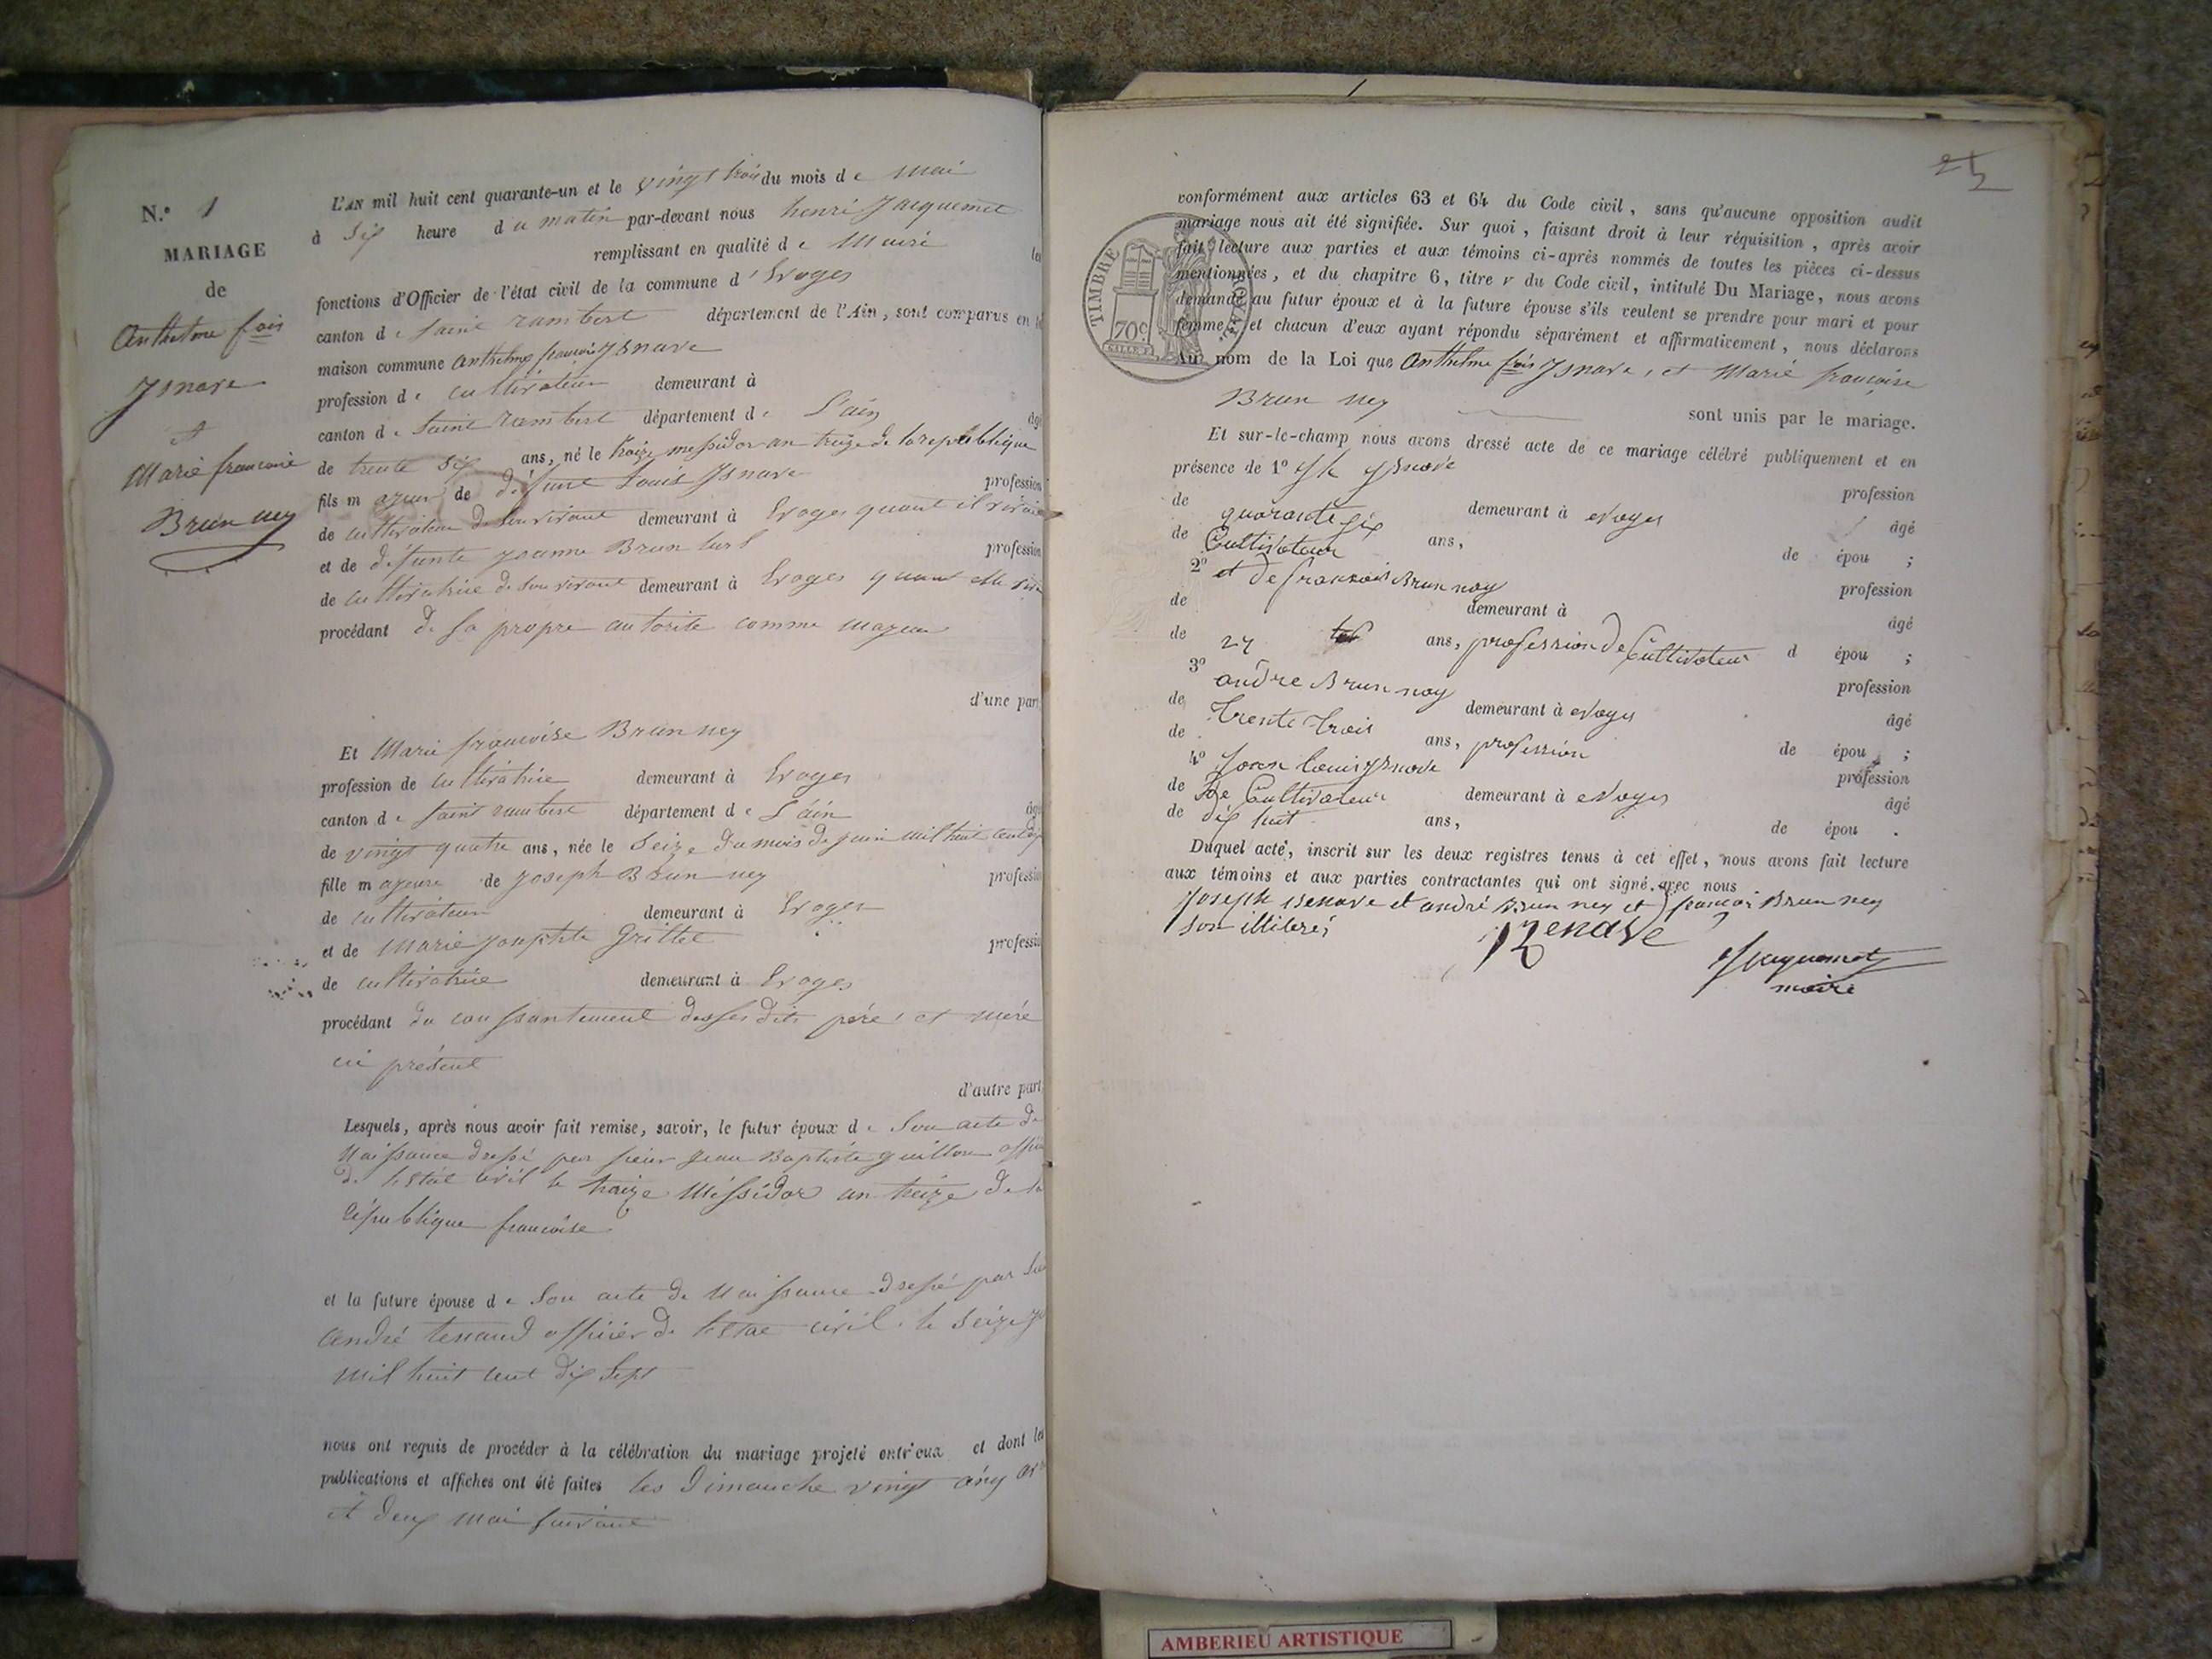 N.º 1
MARIAGE
de
Anthelme fois
Ysnare
et
Marie francoise
Brun ney
L'AN mil huit cent quarante-un et le vingt trois du mois de Mai
à Six heure du matin par-devant nous henri Jacquemet
remplissant en qualité de Maire les
fonctions d'Officier de l'état civil de la commune d'Evoges
canton de Saint rambert département de l'Ain, sont comparus en la
maison commune Anthelme francois Ysnare
profession de cultivateur demeurant à
canton de Saint rambert département de L'ain âgé
de trente Six ans, né le traize messidor an treize de la republique
fils majeur de défunt Louis Ysnare profession
de cultivateur de Son vivant demeurant à Evoges quant il vivait
et de défunte Jeanne Brun profession
de cultivatrice de Son vivant demeurant à Evoges quant elle
procédant de Sa propre autorite comme mageur
d'une part
Et Marie francoise Brun ney
profession de cultivatrice demeurant à Evoges
canton de Saint rambert département de L'ain âgé
de vingt quatre ans, née le Seize du mois de juin mil huit cent
fille mageure de joseph Brun ney profession
de cultivateur demeurant à Evoges
et de Marie josephte Grillet profession
de cultivatrice demeurant à Evoges
procédant du consantement père et mère
ici présent
d'autre part
Lesquels, après nous avoir fait remise, savoir, le futur époux de Son acte de
Naissance dressé par sieur Jean Baptiste guillon
de l'état civil le traize Messidor an treize de la
République francoise
et la future épouse de Son acte de Naissance dressé par
André tenaud officier de l'état civil le Seize
mil huit cent dix Sept
nous ont requis de procéder à la célébration du mariage projeté entr'eux et dont les
publications et affiches ont été faites les Dimanche vingt
et deux mai suivant
25
conformément aux articles 63 et 64 du Code civil, sans qu'aucune opposition audit
mariage nous ait été signifiée. Sur quoi, faisant droit à leur réquisition, après avoir
fait lecture aux parties et aux témoins ci-après nommés de toutes les pièces ci-dessus
mentionnées, et du chapitre 6, titre v du Code civil, intitulé Du Mariage, nous avons
demandé au futur époux et à la future épouse s'ils veulent se prendre pour mari et pour
femme, et chacun d'eux ayant répondu séparément et affirmativement, nous déclarons
Au nom de la Loi que Anthelme fois Ysnare, et Marie francoise
Brun ney sont unis par le mariage.
TIMBRE ROYAL
70c
Et sur-le-champ nous avons dressé acte de ce mariage célébré publiquement et en
présence de 1º ysnare
de profession
quarante six demeurant à evoges âgé
de Cultivateur ans, de épou ;
2º et de francois Brun ney profession
de demeurant à âgé
de 27 ans, profession de Cultivateur d épou ;
3º andre Brun ney profession
de trente trois demeurant à evoges âgé
de ans, profession de épou ;
4º Jean louis ysnare profession
de Cultivateur demeurant à evoges âgé
de dix huit ans, de épou .
Duquel acte, inscrit sur les deux registres tenus à cet effet, nous avons fait lecture
aux témoins et aux parties contractantes qui ont signé avec nous
Joseph isenare et andré Brun ney et francois Brun ney
son illiteré
Izenave
Jacquemet
maire
AMBERIEU ARTISTIQUE